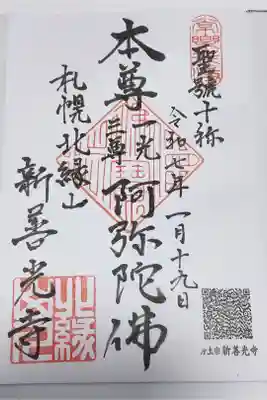 聖號十称
令和七年 一月十九日
本尊 一光三尊 阿弥陀佛
札幌北縁山
新善光寺
浄土宗 新善光寺